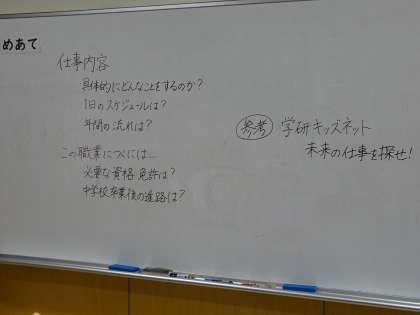 めあて
仕事内容
具体的にどんなことをするのか?
1日のスケジュールは?
年間の流れは?
この職業につくには…
必要な資格 免許は?
中学校卒業後の進路は?
参考 学研キッズネット
未来の仕事を探せ!